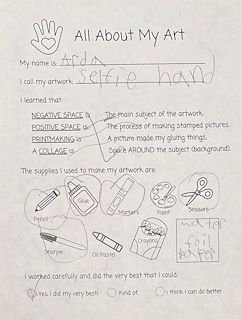 All About My Art
My name is Arda
I call my artwork selfie hand
I learned that:
NEGATIVE SPACE is The main subject of the artwork.
POSITIVE SPACE is The process of making stamped pictures.
PRINTMAKING is A picture made my glueing things.
A COLLAGE is Space AROUND the subject (background).
The supplies I used to make my artwork are:
Pencil Glue Markers Paint Scissors
Sharpie Oil Pastel Crayons
water
foil
paper
I worked carefully and did the very best that I could:
Yes, I did my very best! Kind of. I think I can do better.